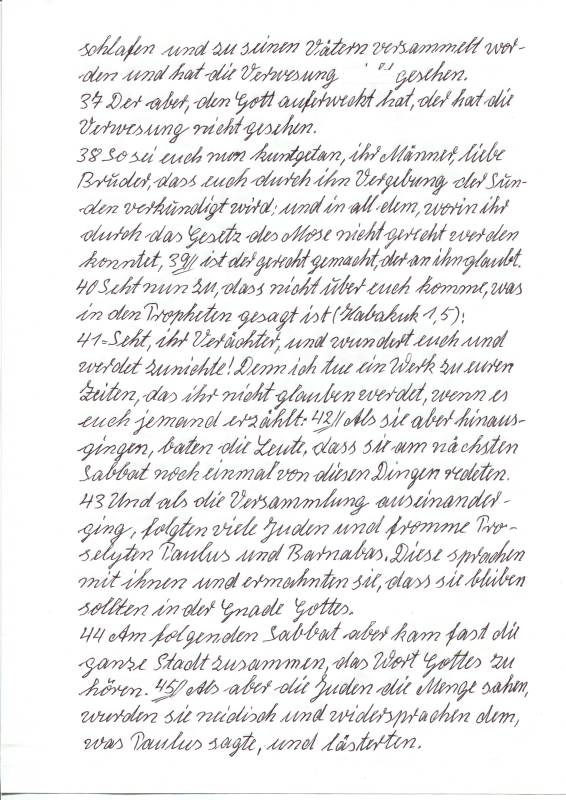 schlafen und zu seinen Vätern versammelt wor-
den und hat die Verwesung gesehen.
37 Der aber, den Gott auferweckt hat, der hat die
Verwesung nicht gesehen.
38 So sei euch nun kuntgetan, ihr Männer, liebe
Brüder, dass euch durch ihn Vergebung der Sün-
den verkündigt wird; und in all dem, worin ihr
durch das Gesetz des Mose nicht gerecht werden
konntet, 39// ist der gerecht gemacht, der an ihn glaubt.
40 Seht nun zu, dass nicht über euch komme, was
in den Propheten gesagt ist (Habakuk 1,5):
41 = Seht, ihr Verächter, und wundert euch und
werdet zunichte! Denn ich tue ein Werk zu euren
Zeiten, das ihr nicht glauben werdet, wenn es
euch jemand erzählt: 42// Als sie aber hinaus-
gingen, baten die Leute, dass sie am nächsten
Sabbat noch einmal von diesen Dingen redeten.
43 Und als die Versammlung auseinander-
ging, folgten viele Juden und fromme Pro-
selyten Paulus und Barnabas. Diese sprachen
mit ihnen und ermahnten sie, dass sie bleiben
sollten in der Gnade Gottes.
44 Am folgenden Sabbat aber kam fast die
ganze Stadt zusammen, das Wort Gottes zu
hören. 45// Als aber die Juden die Menge sahen,
wurden sie neidisch und widersprachen dem,
was Paulus sagte, und lästerten.